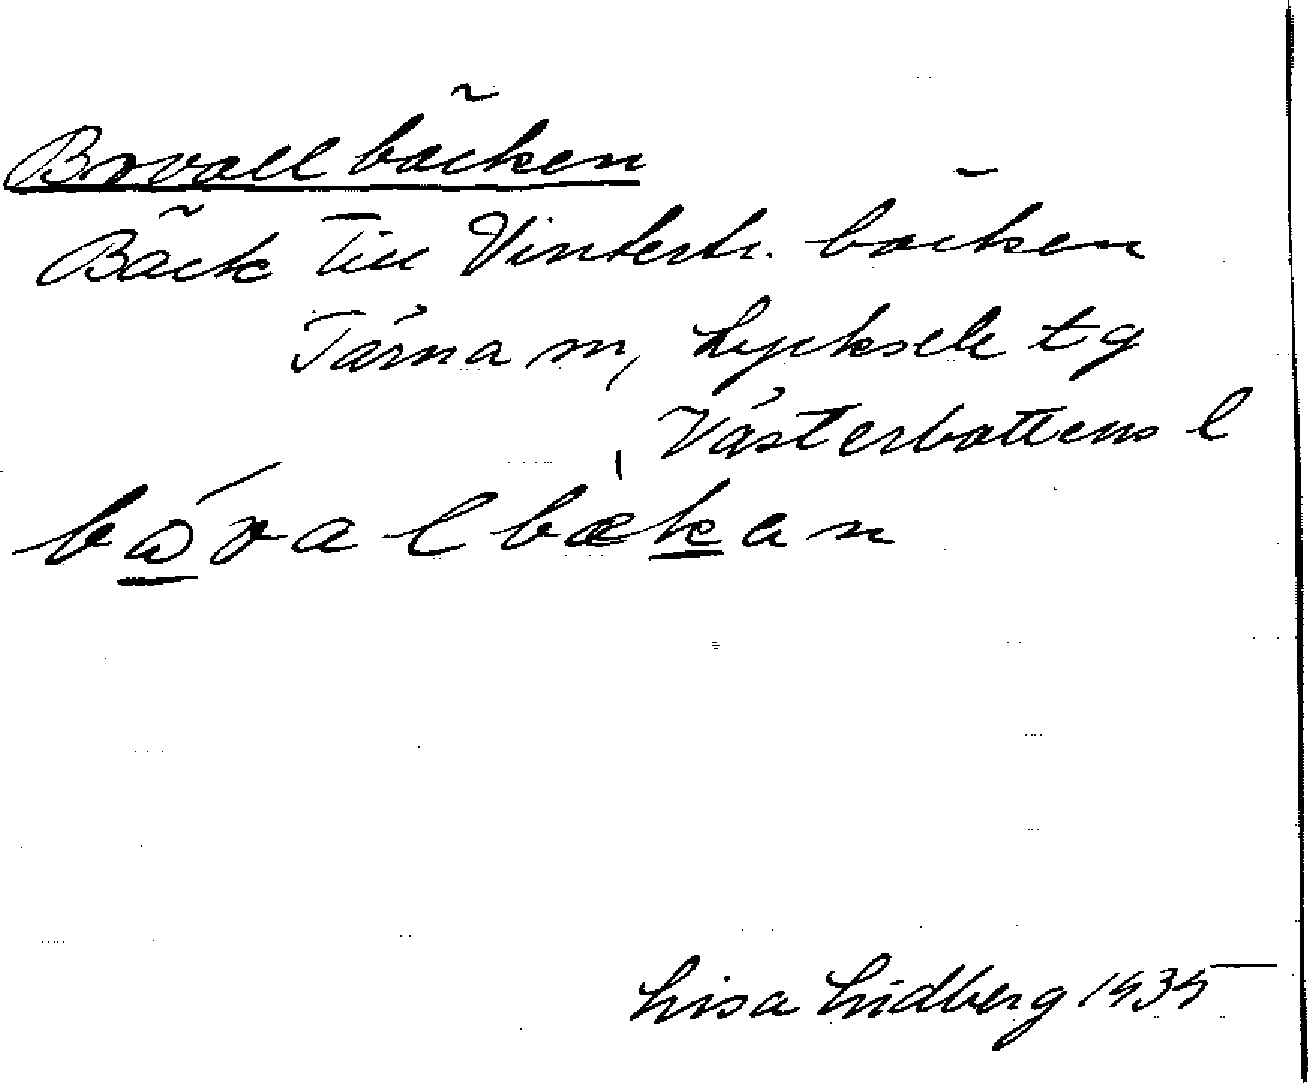 Bovallbäcken
Bäck till Vintertr. bäcken
Tärna sn, Lycksele tg
Västerbottens l
bóvalbækan
Lisa Lidberg 1935